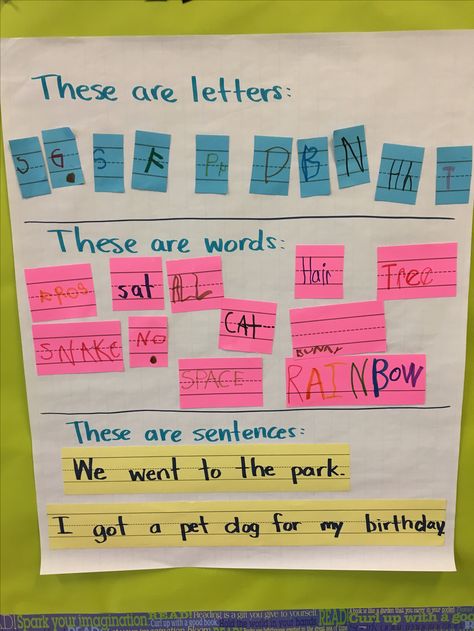 These are letters:
S G. S F Pp D B N Hh T
These are words:
sat ALL Hair Tree
SNAKE No. CAT BUNNY
SPACE RAINBOW
These are sentences:
We went to the park.
I got a pet dog for my birthday.
READ! Spark your imagination READ! Reading is a gift you give to yourself. READ! Curl up with a good
Curl up with a good book.